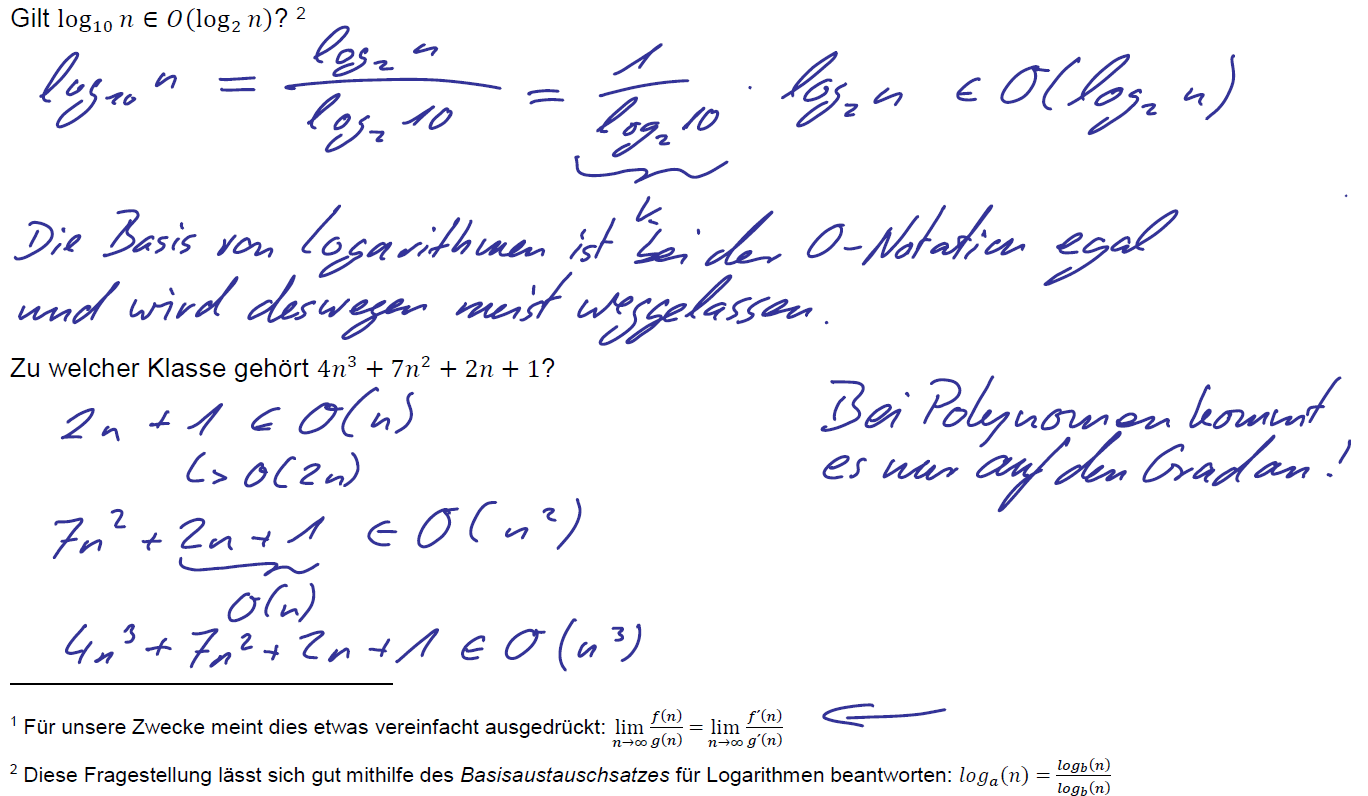 Gilt log₁₀ n ∈ O(log₂ n)? ²
log₁₀ n = log₂ n / log₂ 10 = 1 / log₂ 10 · log₂ n ∈ O(log₂ n)
k
Die Basis von Logarithmen ist bei der O-Notation egal
und wird deswegen meist weggelassen.
Zu welcher Klasse gehört 4n³ + 7n² + 2n + 1?
2n + 1 ∈ O(n)
↳ O(2n)
Bei Polynomen kommt
es nur auf den Grad an!
7n² + 2n + 1 ∈ O(n²)
O(n)
4n³ + 7n² + 2n + 1 ∈ O(n³)
¹ Für unsere Zwecke meint dies etwas vereinfacht ausgedrückt: lim n→∞ f(n)/g(n) = lim n→∞ f′(n)/g′(n) ⟸
² Diese Fragestellung lässt sich gut mithilfe des Basisaustauschsatzes für Logarithmen beantworten: logₐ(n) = log_b(n)/log_b(n)